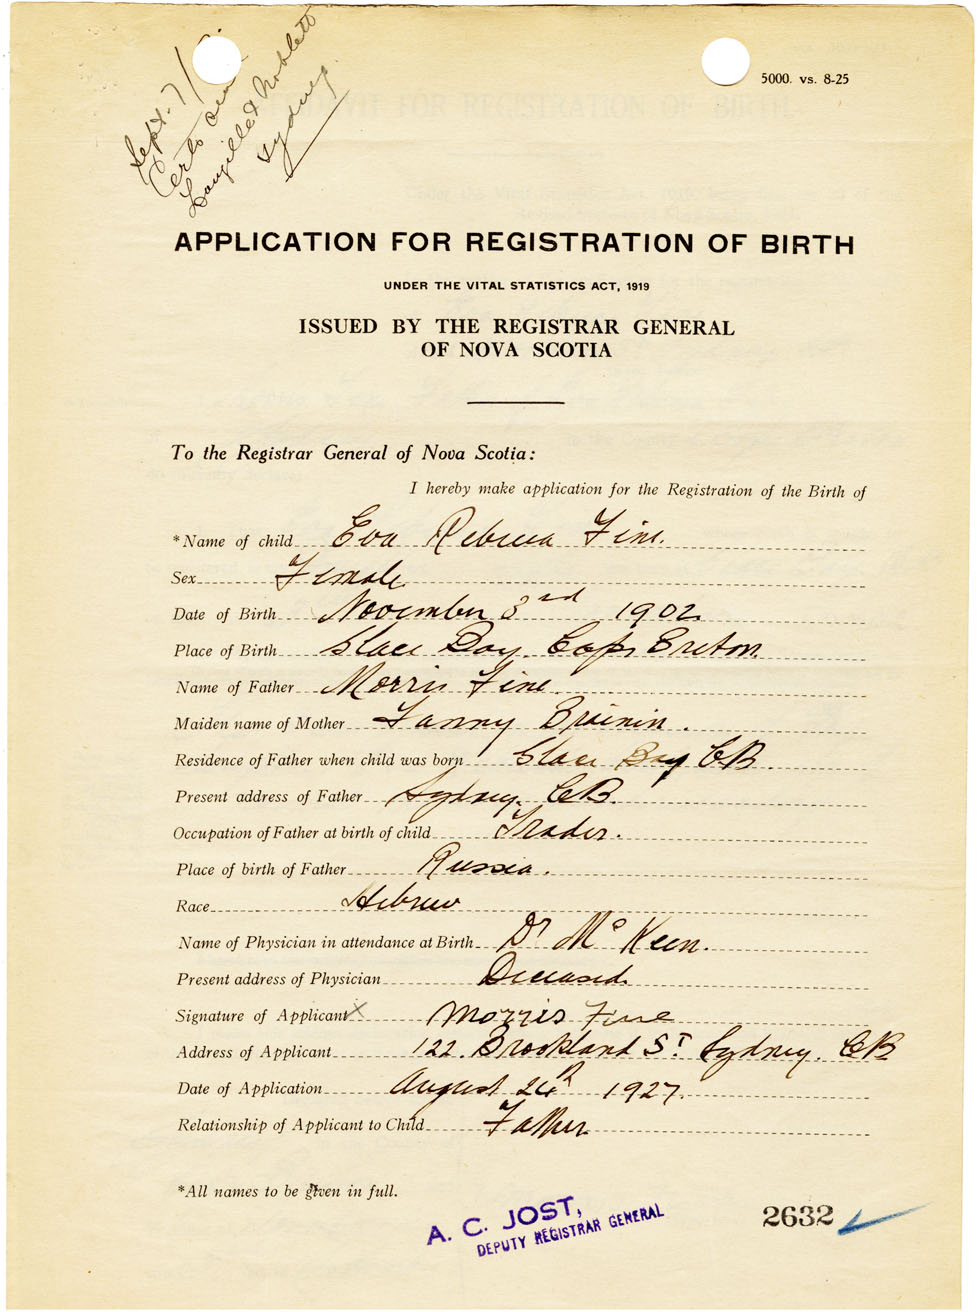 Sept. 7/
Certs
Langille & Noblett
Sydney
5000. vs. 8-25
APPLICATION FOR REGISTRATION OF BIRTH
UNDER THE VITAL STATISTICS ACT, 1919
ISSUED BY THE REGISTRAR GENERAL
OF NOVA SCOTIA
To the Registrar General of Nova Scotia:
I hereby make application for the Registration of the Birth of
*Name of child Eva Rebecca Fine.
Sex Female
Date of Birth November 3rd 1902
Place of Birth Glace Bay. Cape Breton
Name of Father Morris Fine.
Maiden name of Mother Fanny Brainin.
Residence of Father when child was born Glace Bay CB.
Present address of Father Sydney. CB.
Occupation of Father at birth of child Trader.
Place of birth of Father Russia.
Race Hebrew
Name of Physician in attendance at Birth Dr McKeen.
Present address of Physician Deceased.
Signature of Applicant X Morris Fine
Address of Applicant 122. Brookland St Sydney. CB
Date of Application August 24th 1927.
Relationship of Applicant to Child Father
*All names to be given in full.
A. C. JOST,
DEPUTY REGISTRAR GENERAL
2632